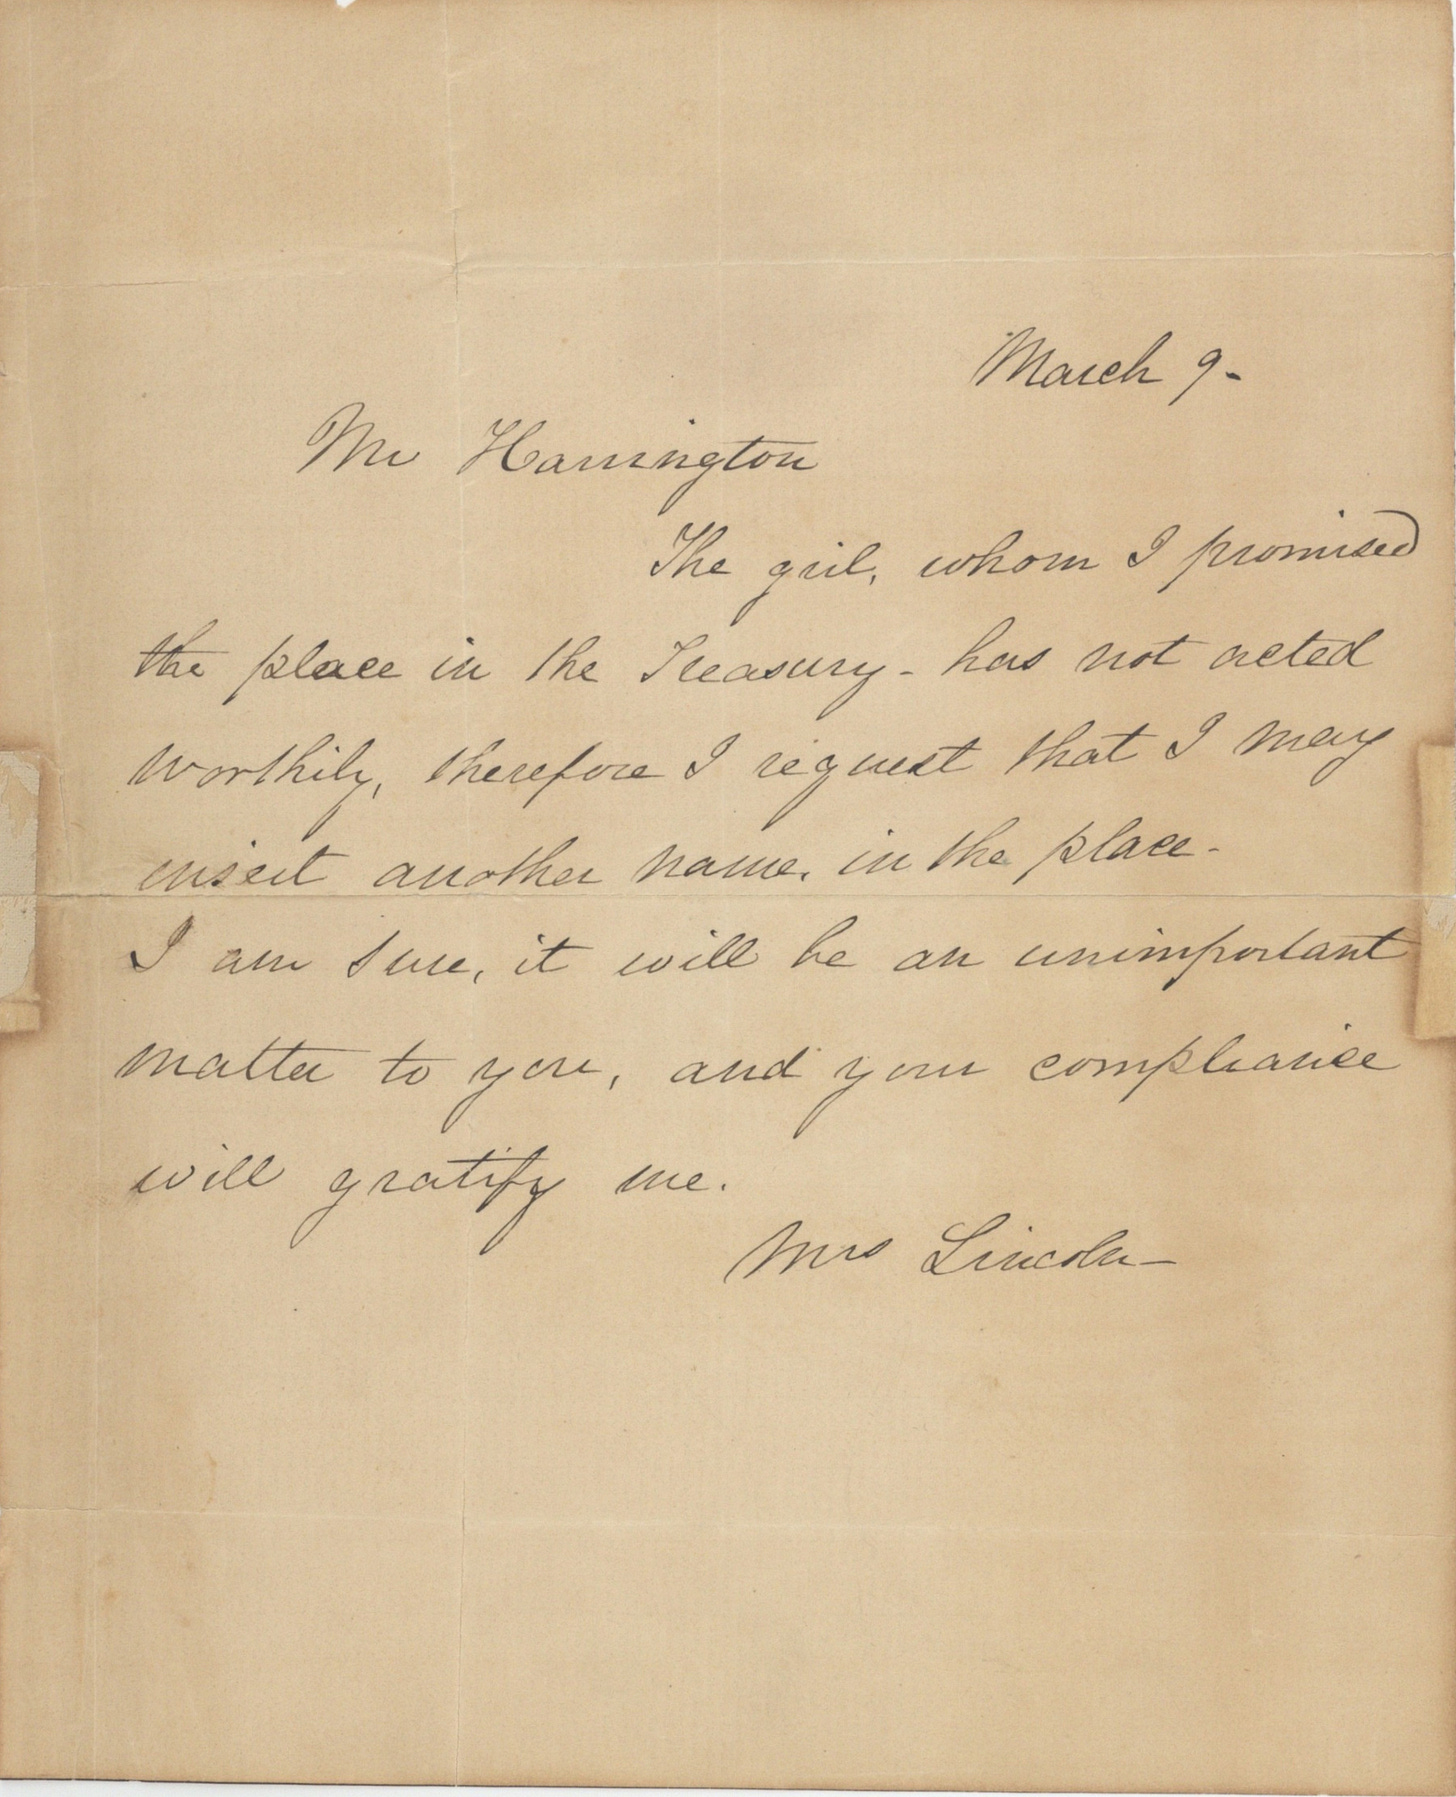 March 9-
Mr Harrington
The girl, whom I promised
the place in the Treasury - has not acted
worthily, therefore I request that I may
insert another name, in the place -
I am sure, it will be an unimportant
matter to you, and your compliance
will gratify me.
Mrs Lincoln -